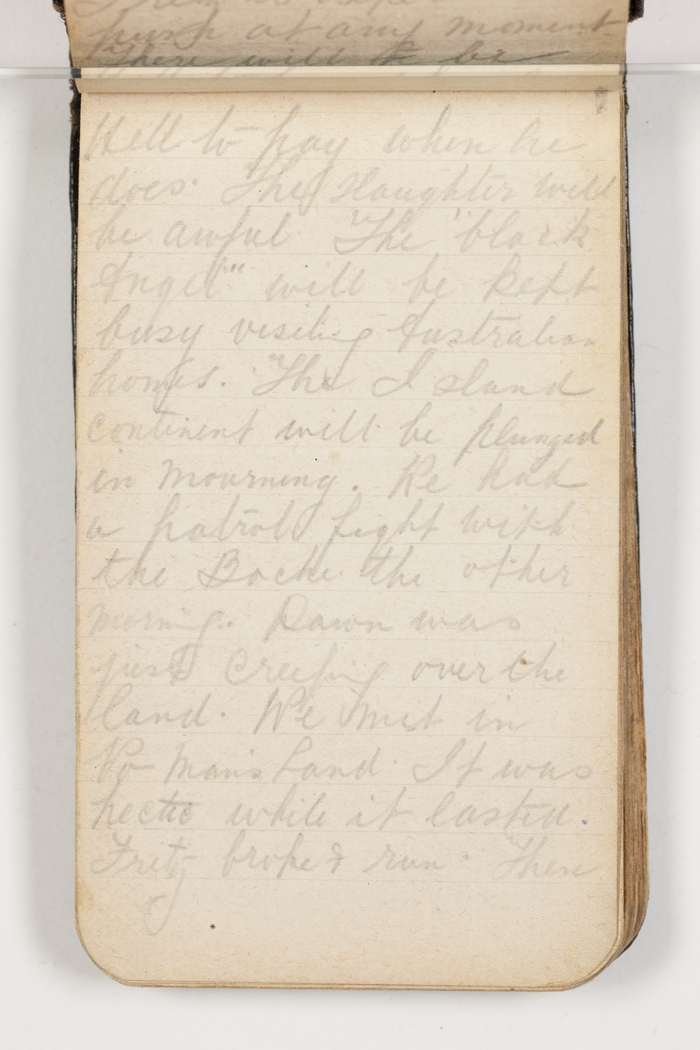 push at any moment
There will be
Hell to pay when he
does. The slaughter will
be awful The "black
Angel" will be kept
busy visiting Australian
homes. The Island
continent will be plunged
in mourning. We had
a patrol fight with
the Boche the other
morning. Dawn was
just creeping over the
land. We met in
No Man's Land. It was
hectic while it lasted.
Fritz broke & run. Then